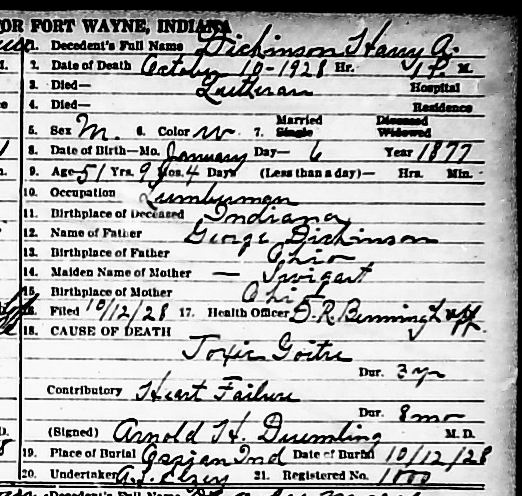 OR FORT WAYNE, INDIANA
1. Decedent's Full Name Dickinson Harry A.
2. Date of Death October 10-1928 Hr. 1 P. M.
3. Died— Lutheran Hospital
4. Died— Residence
Married Divorced
5. Sex M. 6. Color W 7. Single Widowed
8. Date of Birth—Mo. January Day— 6 Year 1877
9. Age 51 Yrs. 9 Mos. 4 Days (Less than a day)— Hrs. Min.
10. Occupation Lumberman
11. Birthplace of Deceased Indiana
12. Name of Father George Dickinson
13. Birthplace of Father Ohio
14. Maiden Name of Mother — Swigart
15. Birthplace of Mother Ohio
16. Filed 10/12/28 17. Health Officer D.R. Benninghoff
18. CAUSE OF DEATH
Toxic Goitre
Dur. 3 yr
Contributory Heart Failure
Dur. 8 mo
(Signed) Arnold H. Duemling M. D.
19. Place of Burial Ossian Ind Date of Burial 10/12/28
20. Undertaker 21. Registered No.
Decedent's Full Name